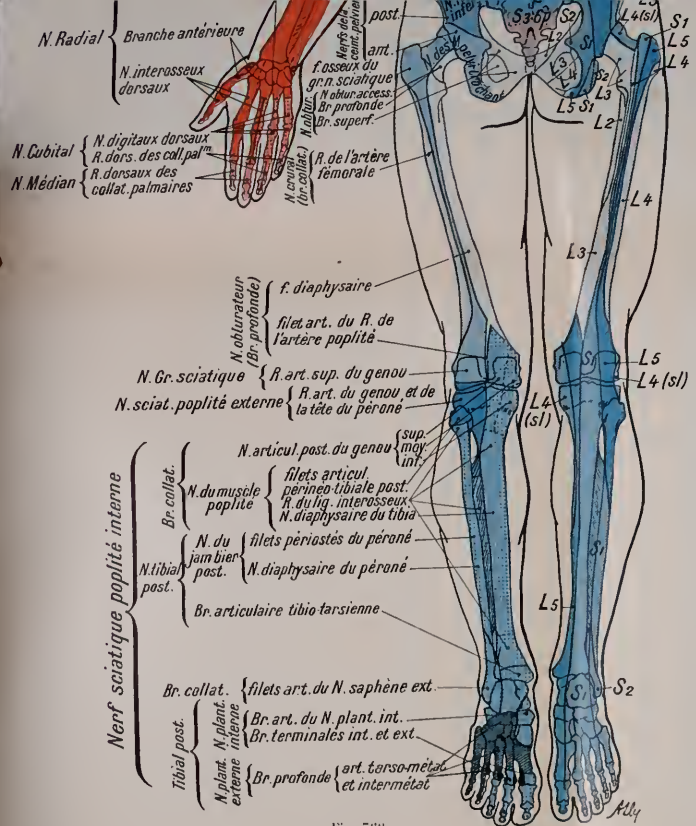 N. Radial
Branche antérieure
N. interosseux
dorsaux
N. Cubital
N. digitaux dorsaux
R. dors. des coll. palm
N. Médian
R. dorsaux des
collat. palmaires
Nerfs de la
ceint. pelvien
post.
ant.
f. osseux du
gr. n. sciatique
N. obtur.
N obtur. access.
Br profonde
Br. superf.
N. crural
(br. collat.)
R. de l'artère
fémorale
S3
S2
L2
S1
L3
L4
L5 S1
S2
L3
L2
L4(sl)
S1
L5
L4
L4
L3
N. obturateur
(Br. profonde)
f. diaphysaire
filet art. du R. de
l'artère poplité
N. Gr. sciatique
R. art. sup. du genou
N. sciat. poplité externe
R. art. du genou et de
la tête du péroné
S1
L5
L4 (sl)
L4
(sl)
Nerf sciatique poplité interne
Br. collat.
N. articul. post. du genou
sup.
moy.
inf.
N. du muscle
poplité
filets articul.
périneo-tibiale post.
R. du lig. interosseux
N. diaphysaire du tibia
N. tibial
post.
N. du
jambier
post.
filets périostés du péroné
N. diaphysaire du péroné
Br. articulaire tibio-tarsienne
S1
L5
Br. collat.
filets art. du N. saphène ext.
S1
S2
Tibial post.
N. plant.
interne
Br. art. du N. plant. int.
Br. terminales int. et ext
N. plant.
externe
Br. profonde
art. tarso-métat
et intermétat